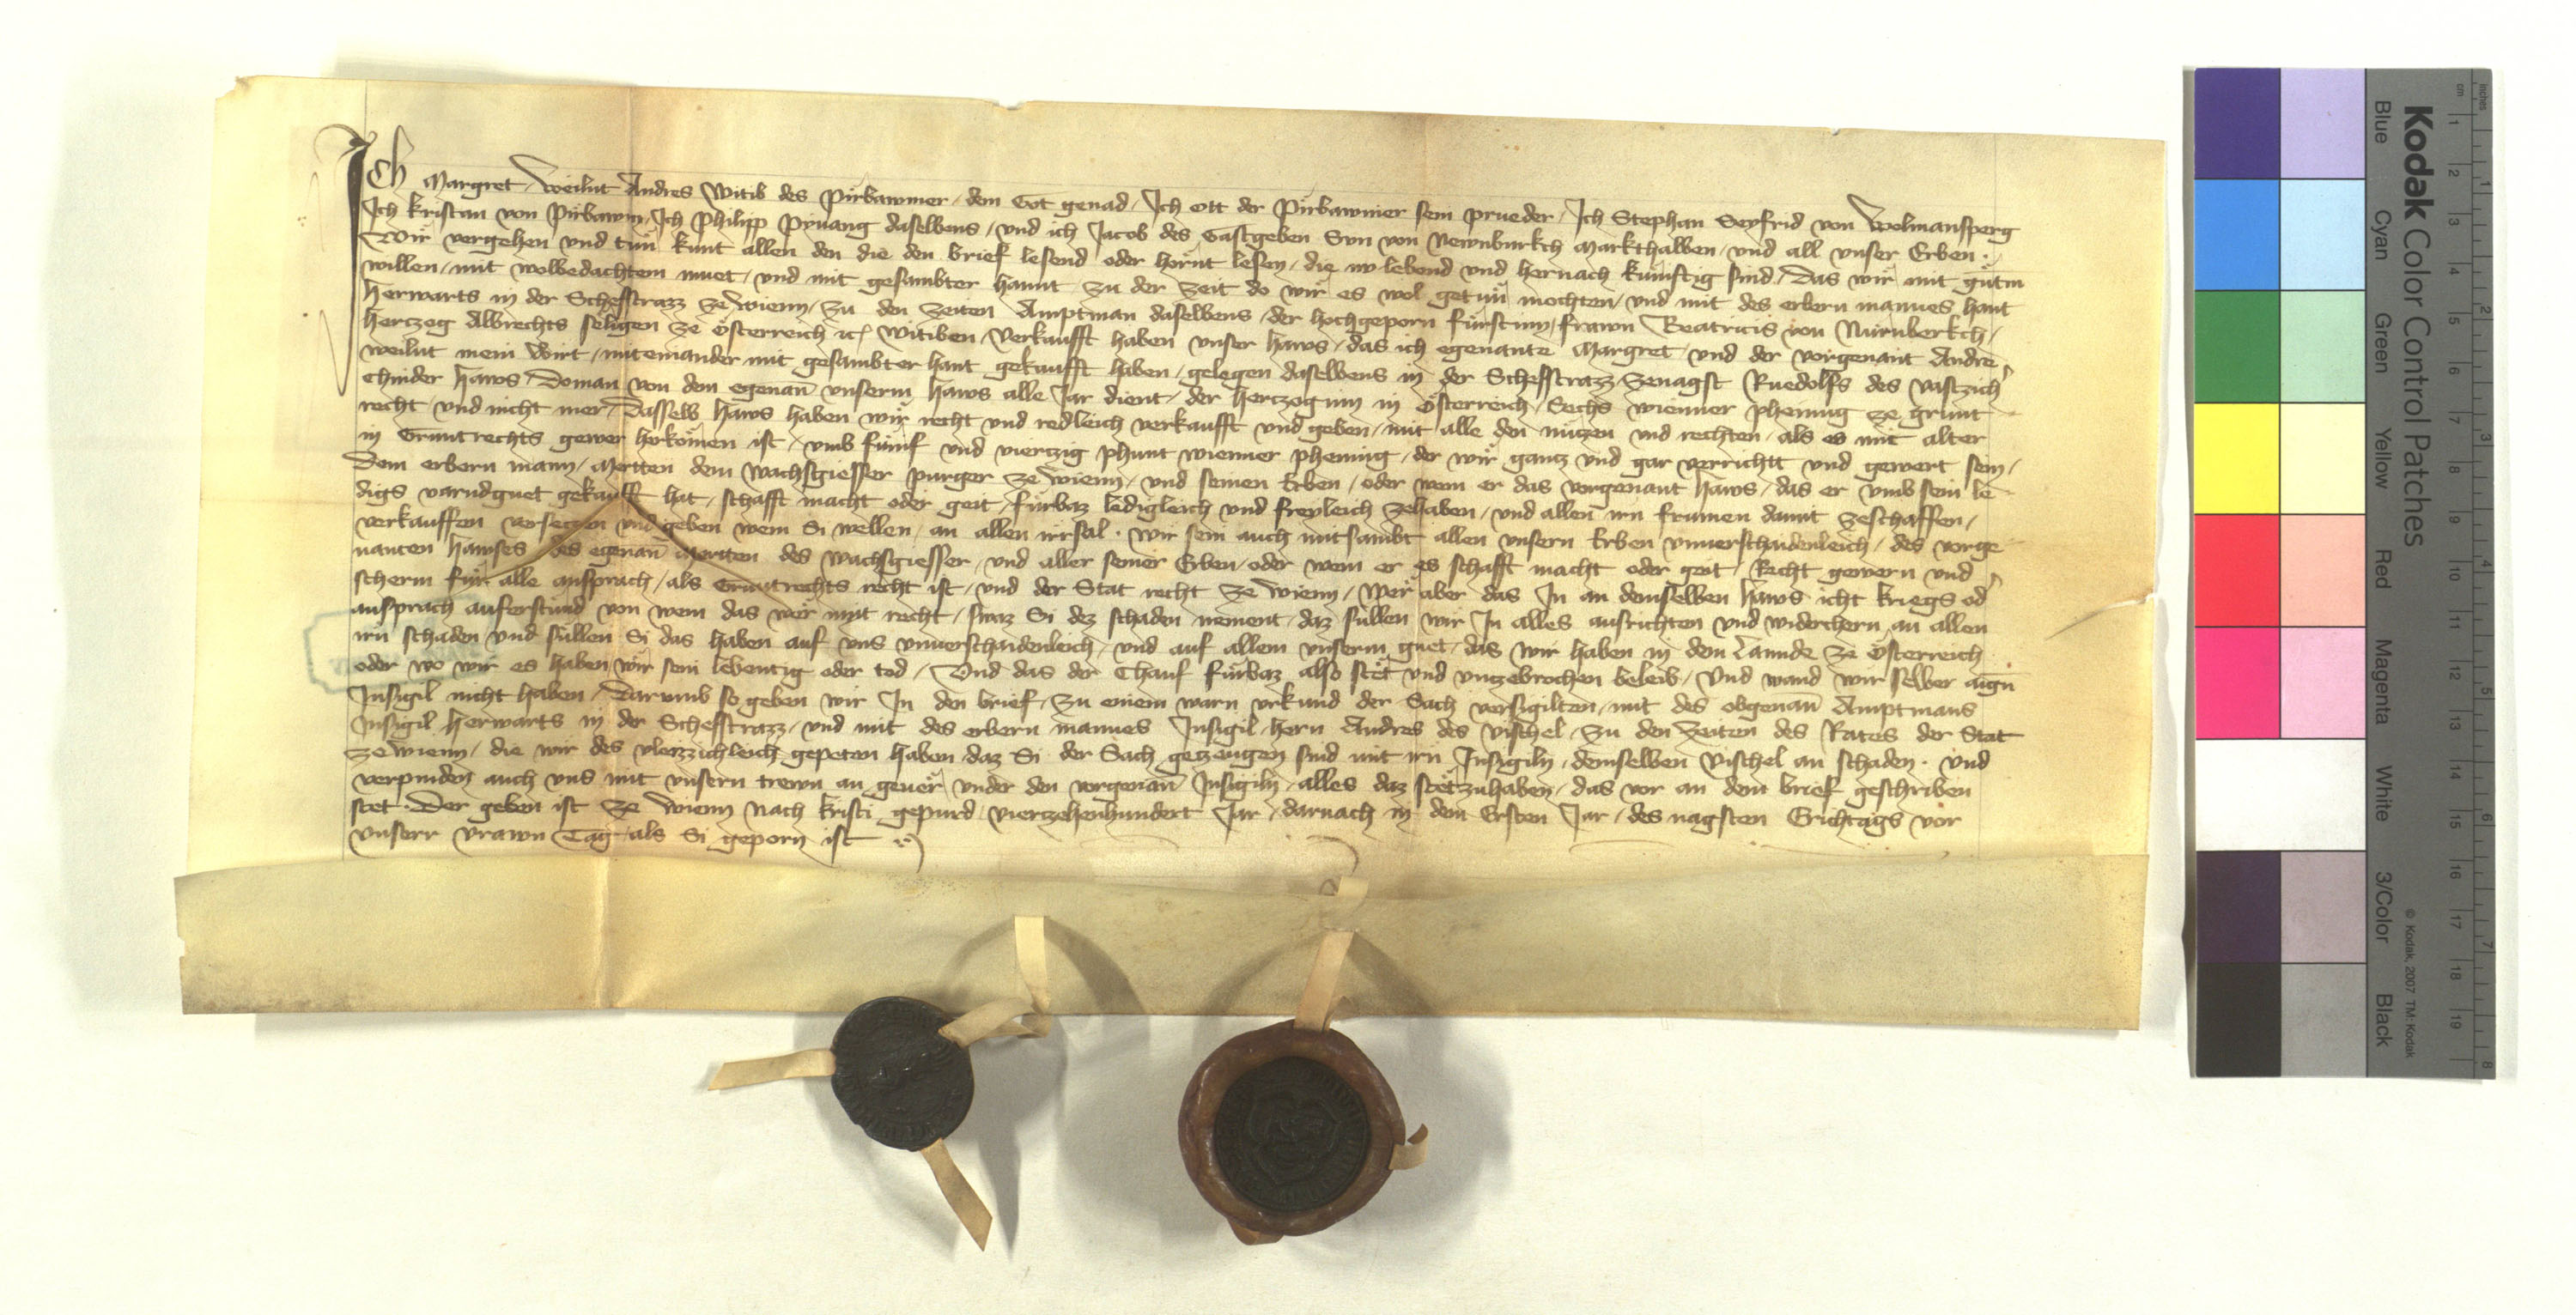 Ich Margret weilnt Andres Witib des Pirbawmer dem Got genad Ich Ott der Pirbawmer sein prueder Ich Stephan Seyfrid von Wolmansperg
Ich kristan von Pirbawm Ich Philipp Pynang daselbens und ich Jacob des Gastgeben Sun von Newnburkch Markthalben und all unser Erben
Wir vergehen und tun kunt allen den die den brief lesend oder hörnt lesen die nu lebend und hernach kunftig sind Das wir mit gutm
willen mit wolbedachtem muet und mit gesambter hannt zu der zeit do wir es wol getun mochten und mit des erbern mannes hant
Herwarts in der Scheffstrazz ze wienn zu den zeiten Amptman daselbens der hochgeporn fürstinn frawn Beatricis von Nürnberkch
Herczog Albrechts seligen ze Österreich etc witiben verkaufft haben unser haws das ich egenante Margret und der vorgenant Andre
weilnt mein wirt miteinander mit gesambter hant gekaufft haben gelegen daselbens in der Scheffstrazz zenagst Ruedolfs des vastzich
chinder haws Doman von dem egenan unserm haws alle Jar dient der herczoginn in Österreich Sechs wienner phening ze grunt
recht und nicht mer Dasselb haws haben wir recht und redleich verkaufft und geben mit alle den nüczen und rechten als es mit alter
in Gruntrechts gewer herkomen ist umb fünf und vierczig phunt wienner phening der wir gancz und gar verrichtt und gewert sein
dem erbern mann Mertten dem wachsgiesser purger ze wienn und seinen Erben oder wem er das vorgenant haws das er umb sein le
digs varundguet gekaufft hat schafft macht oder geit fürbaz ledigleich und freyleich zehaben und allen irn frumen damit zeschaffen
verkauffen verseczen und geben wem Si wellen an allen irrsal wir sein auch mitsambt allen unsern Erben unverschaidenleich des vorge
nanten hawses des egenan Mertten des wachsgiesser und aller seiner Erben oder wem er es schafft macht oder geit Recht gewern und
scherm für alle ansprach als Gruntrechts recht ist und der Stat recht ze wienn Wer aber das In an demselben haws icht kriegs od
ansprach auferstünd von wem das wer mit recht swaz Si dez schaden nement daz süllen wir In alles ausrichten und widerchern an allen
irn schaden und süllen Si das haben auf uns unverschaidenleich und auf allem unserm guet das wir haben in dem Lannde ze Österreich
oder wo wir es haben wir sein lebentig oder tod Und das der Chauf fürbaz also stet und unczebrochen beleib Und wand wir selber aign
Insigil nicht haben Darumb so geben wir In den brief zu einem warn urkund der Sach versigilten mit des obgenan Amptmans
Insigil Herwarts in der Scheffstrazz und mit des erbern mannes Insigil hern Andres des Vischel zu den zeiten des Rates der Stat
ze wienn die wir des vleizzichleich gepeten haben daz Si der Sach geczeugen sind mit irn Insigiln demselben Vischel an schaden Und
verpinden auch uns mit unsern trewn an gever under den vorgenan Insigiln alles daz stet zuhaben das vor an dem brief geschriben
stet Der geben ist ze Wienn Nach kristi gepurd vierczehenhundert Jar darnach in dem Ersten Jar des nagsten Erichtags vor
unserr vrawn Tag als Si geporn ist
Kodak Color Control Patches
© Kodak, 2007 TM: Kodak
Blue Cyan Green Yellow Red Magenta White 3/Color Black
cm 1 2 3 4 5 6 7 8 9 10 11 12 13 14 15 16 17 18 19
inches 1 2 3 4 5 6 7 8